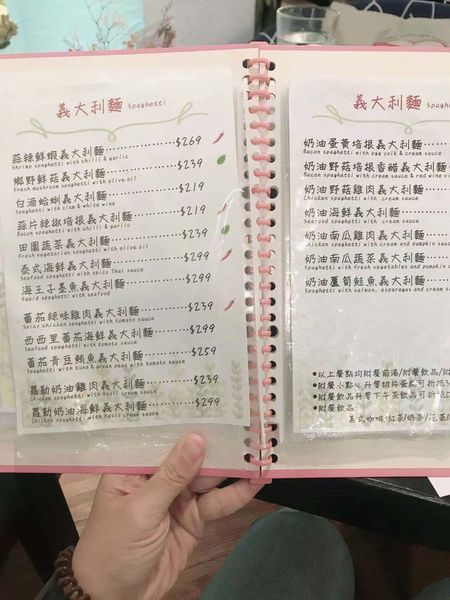 義大利麵 Spaghetti
蒜辣鮮蝦義大利麵 $269
Shrimp spaghetti with chilli & garlic
鄉野鮮菇義大利麵 $239
Fresh mushroom spaghetti with olive oil
白酒蛤蜊義大利麵 $219
Spaghetti with clam & white wine
蒜片辣椒培根義大利麵 $219
Bacon spaghetti with chilli & garlic
田園蔬菜義大利麵 $239
Fresh vegetarian spaghetti with olive oil
泰式海鮮義大利麵 $299
Seafood spaghetti with spicy Thai sauce
海王子墨魚義大利麵 $299
Squid spaghetti with seafood
蕃茄辣味雞肉義大利麵 $239
Spicy chicken spaghetti with tomato sauce
西西里蕃茄海鮮義大利麵 $299
Seafood spaghetti with tomato sauce
蕃茄青豆鮪魚義大利麵 $259
Spaghetti with tuna & green peas with tomato sauce
羅勒奶油雞肉義大利麵 $239
Chicken spaghetti with basil cream sauce
羅勒奶油海鮮義大利麵 $299
Chicken spaghetti with basil cream sauce
義大利麵
奶油蛋黃培根義大利麵
Bacon spaghetti with egg yolk & cream sauce
奶油野菇培根香醋義大利麵
Bacon spaghetti with cream sauce and red wine
奶油野菇雞肉義大利麵
Chicken spaghetti with cream sauce
奶油海鮮義大利麵
Seafood spaghetti with cream sauce
奶油南瓜雞肉義大利麵
Chicken spaghetti with cream and pumpkin sauce
奶油南瓜蔬菜義大利麵
Spaghetti with fresh vegetables and pumpkin
奶油蘆筍鮭魚義大利麵
Spaghetti with salmon, asparagus and cream
●以上餐點均附餐前湯/附餐飲品
●附餐小點心升等切片蛋糕可折抵
●附餐飲品升等下午茶飲品可折抵
●附餐飲品:
美式咖啡/紅茶/奶茶/花茶